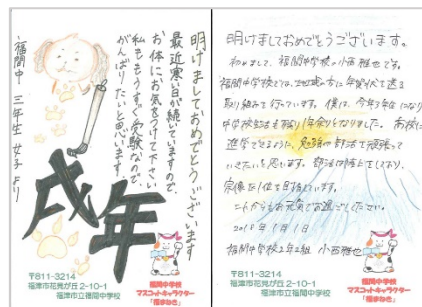 明けましておめでとうございます
最近寒い日が続いていますので、
お体にお気をつけて下さい
私ももうすぐ受験なので、
がんばりたいと思います
福間中 三年生 女子より
戌年
〒811-3214
福津市花見が丘2-10-1
福津市立福間中学校
福間中学校
マスコットキャラクター
「福まねき」
明けましておめでとうございます。
初めまして、福間中学校の小西雅也です。
福間中学校では、地域の方に年賀状を送る
取り組みを行っています。僕は、今年3年生になり
中学校生活も残り1年余りとなりました。高校に
進学できるように、勉強や部活を頑張って
いきたいと思います。部活は陸上をしており、
1位を目指しています。
これからもお元気でお過ごしください。
2018年1月1日
福間中学校2年2組 小西雅也
〒811-3214
福津市花見が丘2-10-1
福津市立福間中学校
福間中学校
マスコットキャラクター
「福まねき」